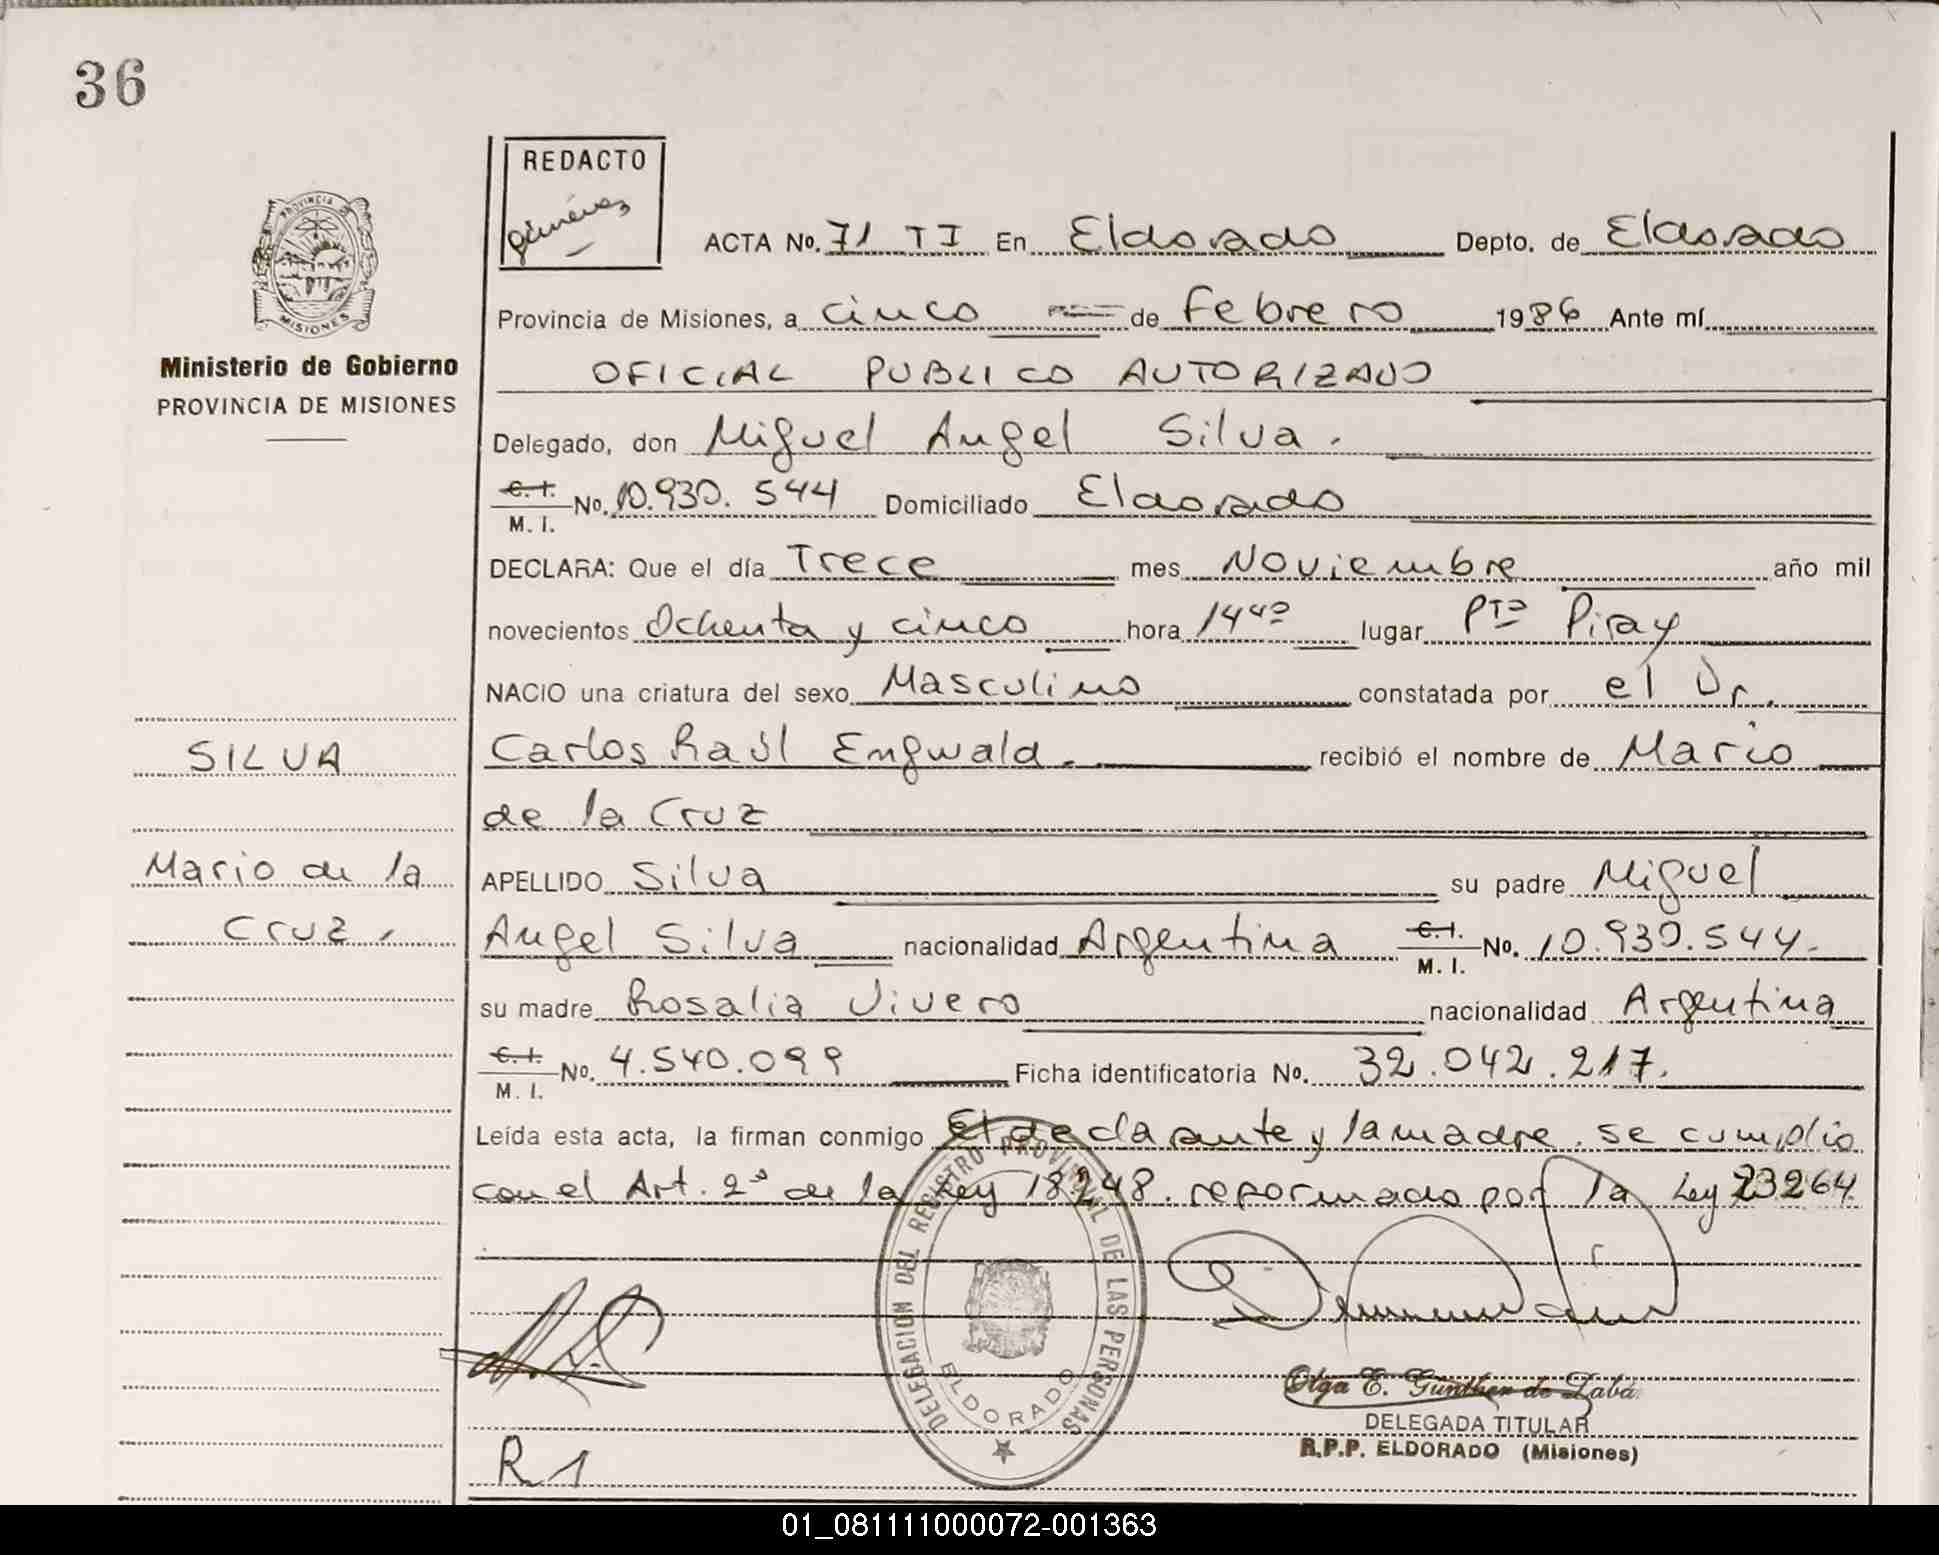 36
REDACTO
giménez
ACTA No. 71 TI En Eldorado Depto. de Eldorado
PROVINCIA
MISIONES
Provincia de Misiones, a cinco de Febrero 1986 Ante mí
Ministerio de Gobierno
PROVINCIA DE MISIONES
OFICIAL PUBLICO AUTORIZADO
Delegado, don Miguel Angel Silva.
C. I. M. I. No. 10.930.544 Domiciliado Eldorado
DECLARA: Que el día Trece mes Noviembre año mil
novecientos Ochenta y cinco hora 14 40 lugar Pto Piray
NACIO una criatura del sexo Masculino constatada por el Dr.
SILVA
Carlos Raúl Engwald. recibió el nombre de Mario
de la Cruz
Mario de la
Cruz.
APELLIDO Silva su padre Miguel
Angel Silva nacionalidad Argentina C. I. M. I. No. 10.930.544.
su madre Rosalia Vivero nacionalidad Argentina
C. I. M. I. No. 4.540.099 Ficha identificatoria No. 32.042.217.
Leída esta acta, la firman conmigo El declarante y la madre. se cumplio
con el Art. 2º de la Ley 18248. reformado por la Ley 23264.
DELEGACION DEL REGISTRO PROVINCIAL DE LAS PERSONAS
ELDORADO
Olga E. Günther de Zaba
DELEGADA TITULAR
R.P.P. ELDORADO (Misiones)
R 1
01_081111000072-001363